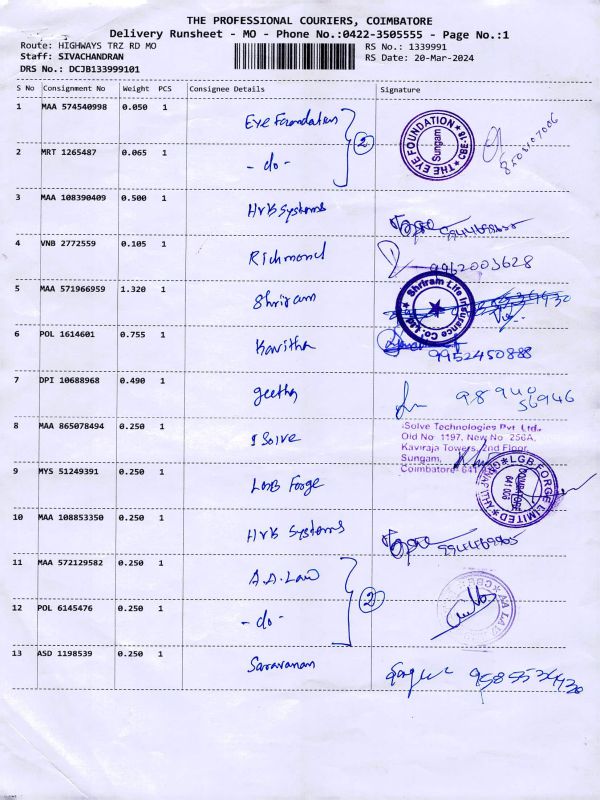 THE PROFESSIONAL COURIERS, COIMBATORE
Delivery Runsheet - MO - Phone No.:0422-3505555 - Page No.:1
Route: HIGHWAYS TRZ RD MO RS No.: 1339991
Staff: SIVACHANDRAN RS Date: 20-Mar-2024
DRS No.: DCJB133999101
S No Consignment No Weight PCS Consignee Details Signature
1 MAA 574540998 0.050 1 Eye Foundation 2
THE EYE FOUNDATION CBE-18 Sungam
2 MRT 1265487 0.065 1 -do-
3 MAA 108390409 0.500 1 HVB Systems
4 VNB 2772559 0.105 1 Richmond 9962003628
5 MAA 571966959 1.320 1 Shriram
Shriram Life Insurance Co. Ltd.
6 POL 1614601 0.755 1 Kavitha 9952450888
7 DPI 10688968 0.490 1 geetha 98940
56946
8 MAA 865078494 0.250 1 I Solve
iSolve Technologies Pvt. Ltd.,
Old No 1197, New No 256A,
Kaviraja Towers, 2nd Floor,
Sungam,
Coimbatore- 641
9 MYS 51249391 0.250 1 LGB Forge
LGB FORGE LIMITED
COIMBATORE
641 006
10 MAA 108853350 0.250 1 HVB Systems
11 MAA 572129582 0.250 1 A.A.Law 2
AA LAW
12 POL 6145476 0.250 1 -do-
13 ASD 1198539 0.250 1 Saravanan